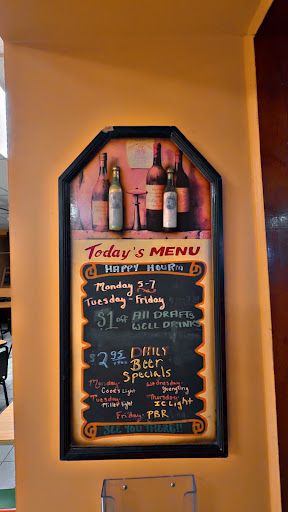 Today's MENU
HAPPY HOUR
Monday 5-7
Tuesday - Friday
$1 off All DRAFTS
WELL DRINKS
$2.95
DAILY
Beer
Specials
Monday- Wednesday-
Coors Light Yuengling
Tuesday- Thursday-
Miller Light IC Light
Friday- PBR
SEE YOU THERE!!